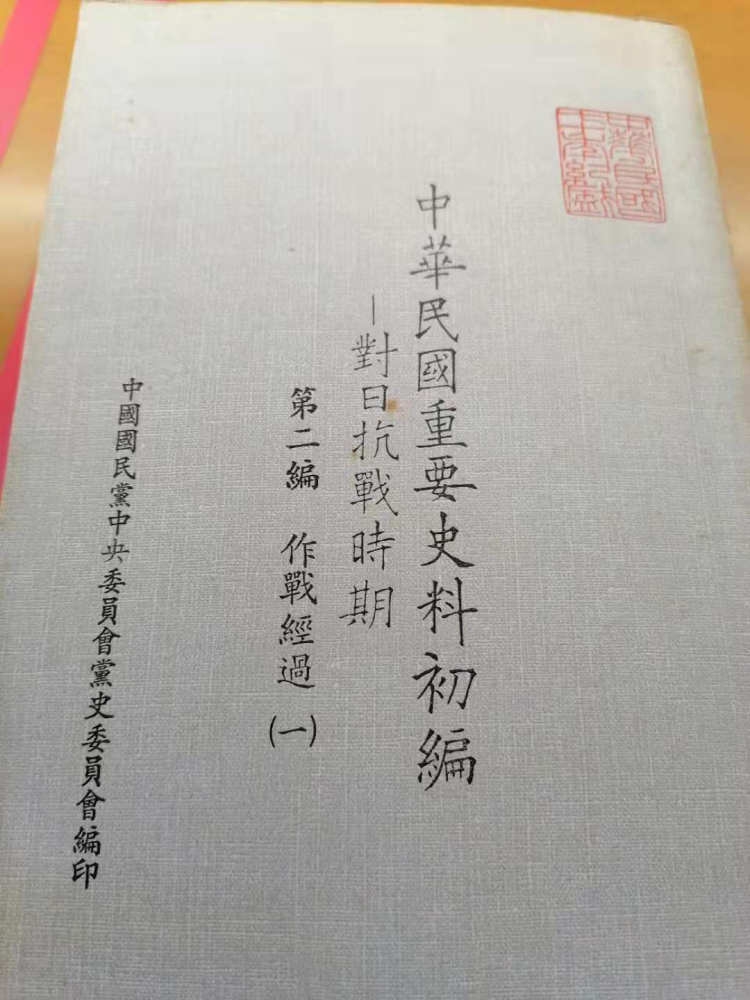 中華民國重要史料初編
—對日抗戰時期
第二編 作戰經過(一)
中國國民黨中央委員會黨史委員會編印